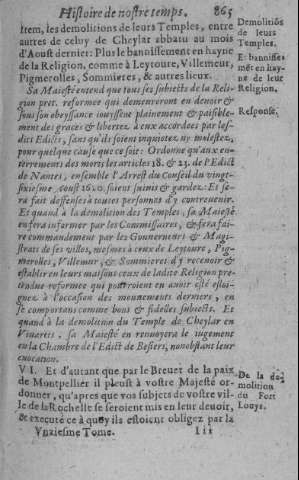 Histoire de nostre temps. 865
Item, les demolitions de leurs Temples, entre
autres de celuy de Cheylar abbatu au mois
d'Aoust dernier: Plus le bannissement en hayne
de la Religion, comme à Leytoure, Villemeur,
Pigmerolles, Sommieres, & autres lieux.
Demolitiõs
de leurs
Temples.
Et bannisse-
mẽt en hay-
ne de leur
Religion.
Sa Majesté entend que tous ses subiects de la Reli-
gion pret. reformee qui demeureront en devoir &
sous son obeyssance iouyssent plainement & paisible-
ment des graces & libertez à eux accordees par les-
dict Edicts, sans qu'ils soient inquietez ny molestez,
pour quelque cause que ce soit: Ordonne qu'aux en-
terrements des morts les articles 18. & 23. de l'Edict
de Nantes, ensemble l'Arrest du Conseil du vingt-
sixiesme coust 1620. soient suivis & gardez: Et se-
ra fait deffenses à toutes personnes d'y contrevenir.
Et quand à la demolition des Temples, sa Majesté
en fera informer par les Commissaires, & fera fai-
re commandement par les Gouverneurs & Magi-
strats de ses villes, mesmes à ceux de Leytoure, Pig-
merolles, Villemur, & Sommieres d'y recevoir &
establir en leurs maisons ceux de ladite Religion pre-
tendue reformee qui pourroient en avoir esté esloi-
gnez à l'occasion des mouvements derniers, en
se comportans comme bons & fidelles subiects. Et
quand à la demolition du Temple de Cheylar en
Vivarets, sa Majesté en renvoyera le iugement
en la Chambre de l'Edict de Besiers, nonobstant leur
evocation.
Response.
VI. Et d'autant que par le Brevet de la paix
de Montpellier il pleust à vostre Majesté or-
donner, qu'apres que vos subjects de vostre vil-
le de la Rochelle se seroient mis en leur devoir,
& executé ce à quoy ils estoient obligez par la
De la de-
molition
du Fort
Louys.
Vnziesme Tome. Iii